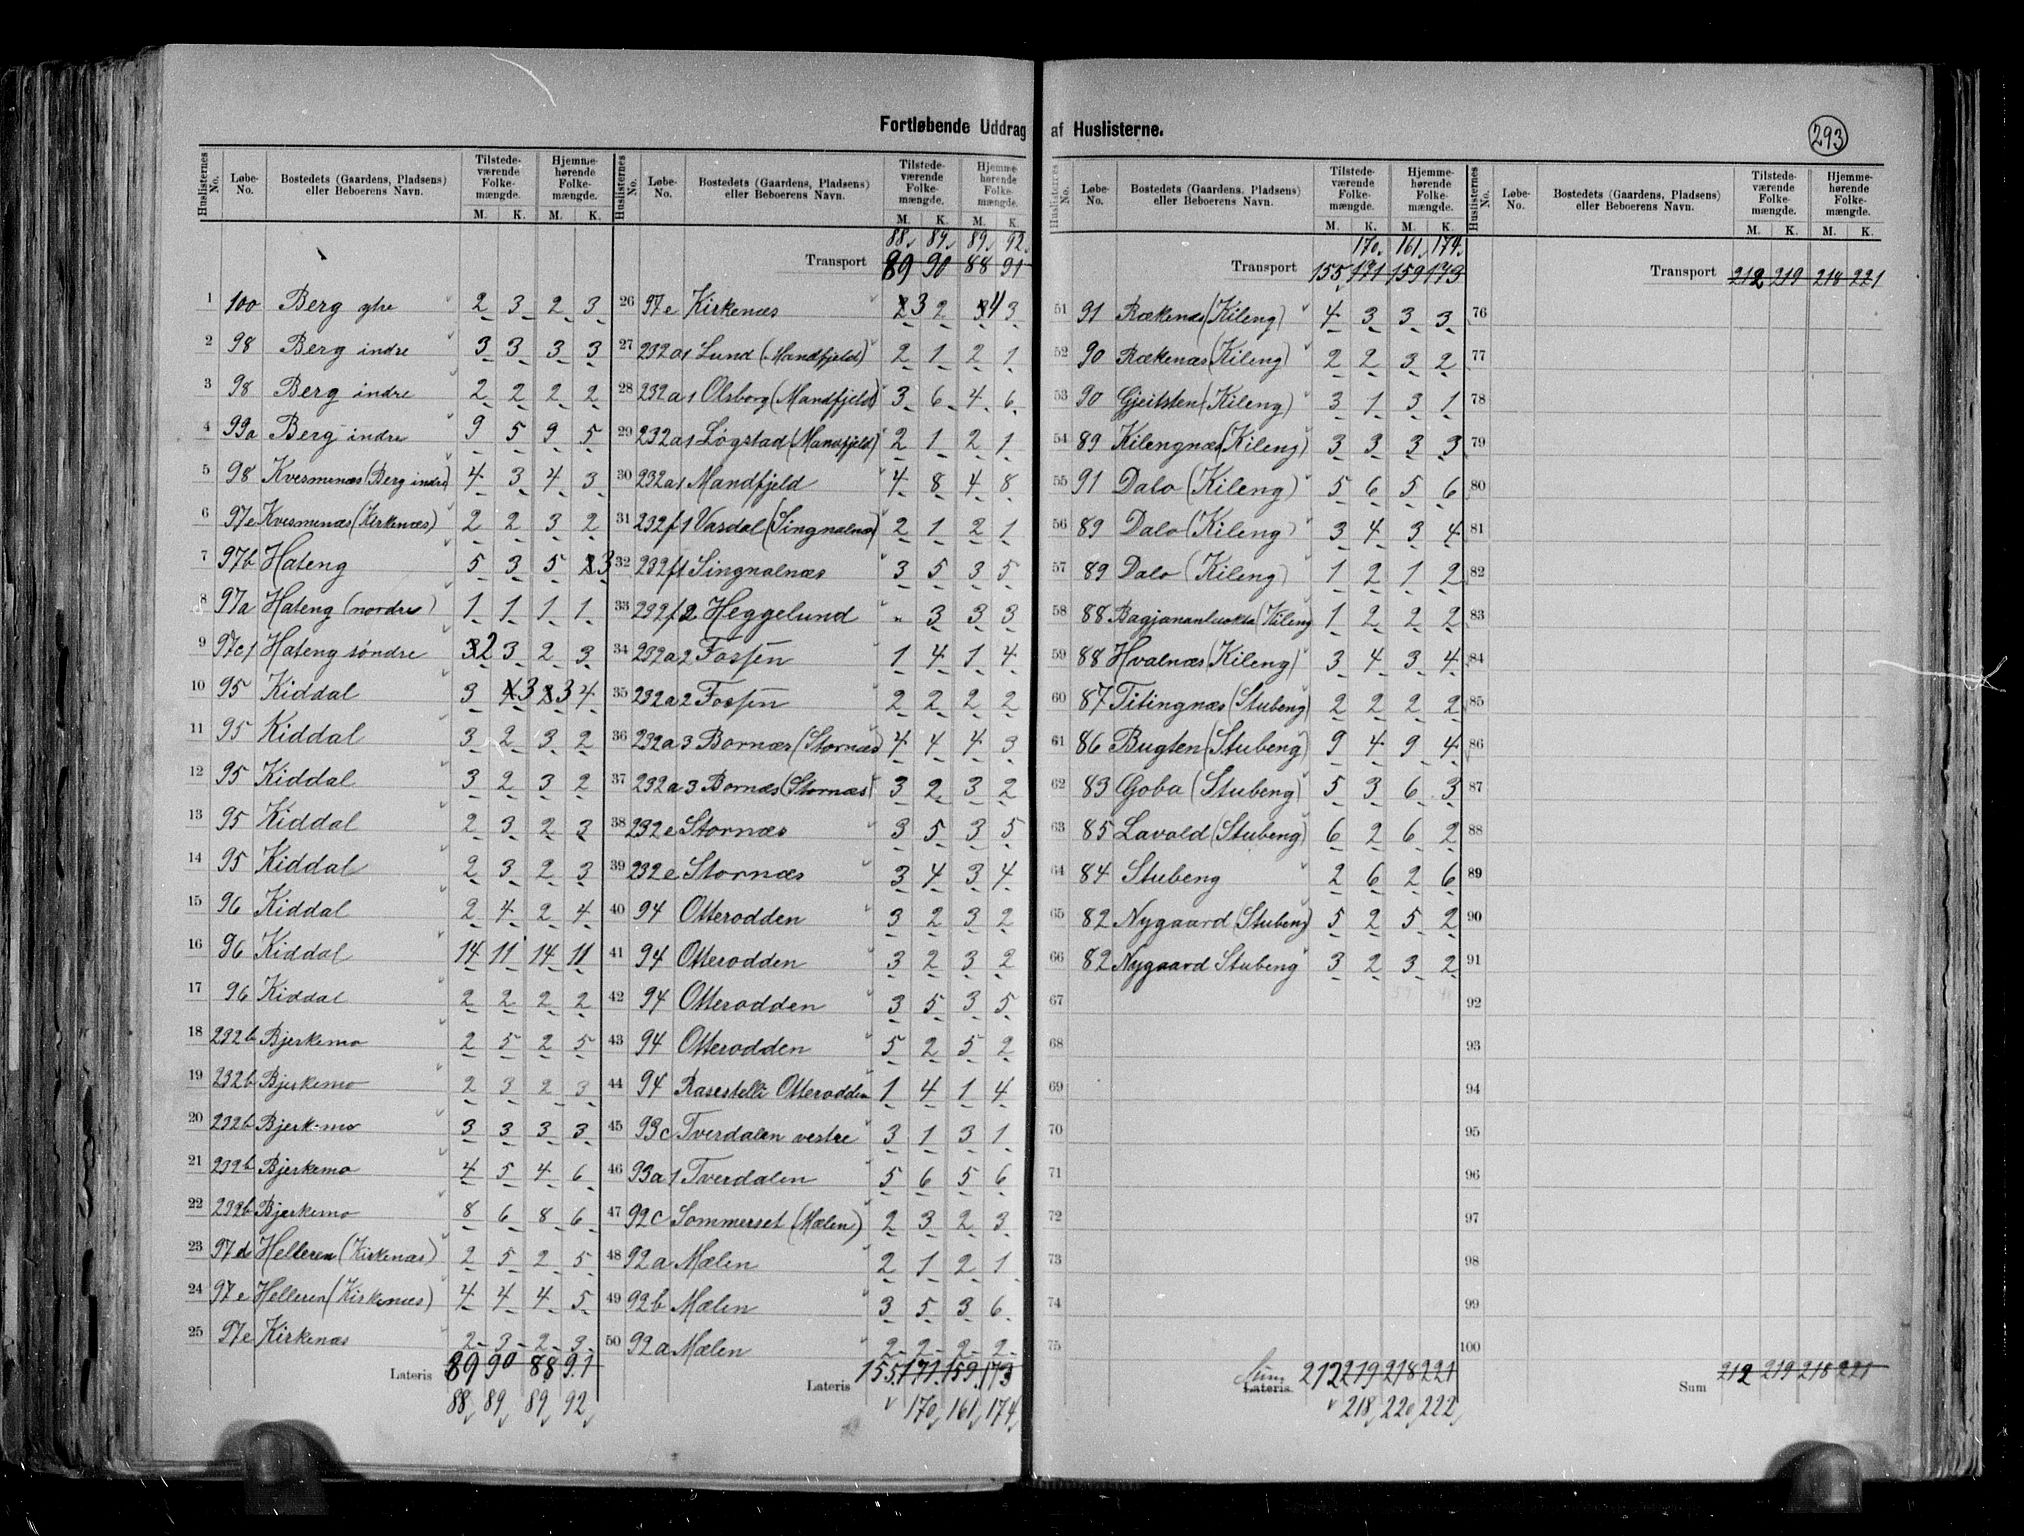 Fortløbende Uddrag af Huslisterne.
293
Huslisternes No. Løbe-No. Bostedets (Gaardens, Pladsens) eller Beboerens Navn. Tilstedeværende Folkemængde. M. K. Hjemmehørende Folkemængde. M. K.
1 100 Berg ytre 2 3 2 3
2 98 Berg indre 3 3 3 3
3 98 Berg indre 2 2 2 2
4 99a Berg indre 9 5 9 5
5 98 Kvesmenæs (Berg indre) 4 3 4 3
6 97e Kvesmenæs (Kirkenæs) 2 2 3 2
7 97b Hateng 5 3 5 3
8 97a Hateng (nordre) 1 1 1 1
9 97c1 Hateng søndre 2 3 2 3
10 95 Kiddal 3 3 3 4
11 95 Kiddal 3 2 3 2
12 95 Kiddal 3 2 3 2
13 95 Kiddal 2 3 2 3
14 95 Kiddal 2 3 2 3
15 96 Kiddal 2 4 2 4
16 96 Kiddal 14 11 14 11
17 96 Kiddal 2 2 2 2
18 232b Bjerkemo 2 5 2 5
19 232b Bjerkemo 2 3 2 3
20 232b Bjerkemo 3 3 3 3
21 232b Bjerkemo 4 5 4 6
22 232b Bjerkemo 8 6 8 6
23 97d Helleren (Kirkenæs) 2 5 2 5
24 97e Helleren (Kirkenæs) 4 4 4 5
25 97e Kirkenæs 2 3 2 3
Lateris 89 90 88 91
88 89 89 92
Huslisternes No. Løbe-No. Bostedets (Gaardens, Pladsens) eller Beboerens Navn. Tilstedeværende Folkemængde. M. K. Hjemmehørende Folkemængde. M. K.
88 89 89 92
Transport 89 90 88 91
26 97e Kirkenæs 3 2 4 3
27 232a1 Lund (Mandfjeld) 2 1 2 1
28 232a1 Olsborg (Mandfjeld) 3 6 4 6
29 232a1 Løgstad (Mandfjeld) 2 1 2 1
30 232a1 Mandfjeld 4 8 4 8
31 232f1 Vasdal (Singnalnæs) 2 1 2 1
32 232f1 Singnalnæs 3 5 3 5
33 232f2 Heggelund " 3 3 3
34 232a2 Fossen 1 4 1 4
35 232a2 Fossen 2 2 2 2
36 232a3 Bornæs (Stornæs) 4 4 4 3
37 232a3 Bornæs (Stornæs) 3 2 3 2
38 232e Stornæs 3 5 3 5
39 232e Stornæs 3 4 3 4
40 94 Otterodden 3 2 3 2
41 94 Otterodden 3 2 3 2
42 94 Otterodden 3 5 3 5
43 94 Otterodden 5 2 5 2
44 94 Rasestelli Otterodden 1 4 1 4
45 93c Tverdalen vestre 3 1 3 1
46 93a1 Tverdalen 5 6 5 6
47 92c Sommerset (Mælen) 2 3 2 3
48 92a Mælen 2 1 2 1
49 92b Mælen 3 5 3 6
50 92a Mælen 2 2 2 2
Lateris 155 171 159 173
170 161 174
Huslisternes No. Løbe-No. Bostedets (Gaardens, Pladsens) eller Beboerens Navn. Tilstedeværende Folkemængde. M. K. Hjemmehørende Folkemængde. M. K.
170 161 174
Transport 155 171 159 173
51 91 Rækenæs (Kileng) 4 3 3 3
52 90 Rækenæs (Kileng) 2 2 3 2
53 90 Gjeitsten (Kileng) 3 1 3 1
54 89 Kilengnæs (Kileng) 3 3 3 3
55 91 Dalo (Kileng) 5 6 5 6
56 89 Dalo (Kileng) 3 4 3 4
57 89 Dalo (Kileng) 1 2 1 2
58 88 Bagjananluokta (Kileng 1 2 2 2
59 88 Hvalnæs (Kileng) 3 4 3 4
60 87 Titingnæs (Stubeng) 2 2 2 2
61 86 Bugten (Stubeng) 9 4 9 4
62 83 Goba (Stubeng) 5 3 6 3
63 85 Lavold (Stubeng) 6 2 6 2
64 84 Stubeng 2 6 2 6
65 82 Nygaard (Stubeng) 5 2 5 2
66 82 Nygaard Stubeng 3 2 3 2
67
68
69
70
71
72
73
74
75
Sum Lateris 212 219 218 221
218 220 222
Huslisternes No. Løbe-No. Bostedets (Gaardens, Pladsens) eller Beboerens Navn. Tilstedeværende Folkemængde. M. K. Hjemmehørende Folkemængde. M. K.
Transport 212 219 218 221
76
77
78
79
80
81
82
83
84
85
86
87
88
89
90
91
92
93
94
95
96
97
98
99
100
Sum 212 219 218 221